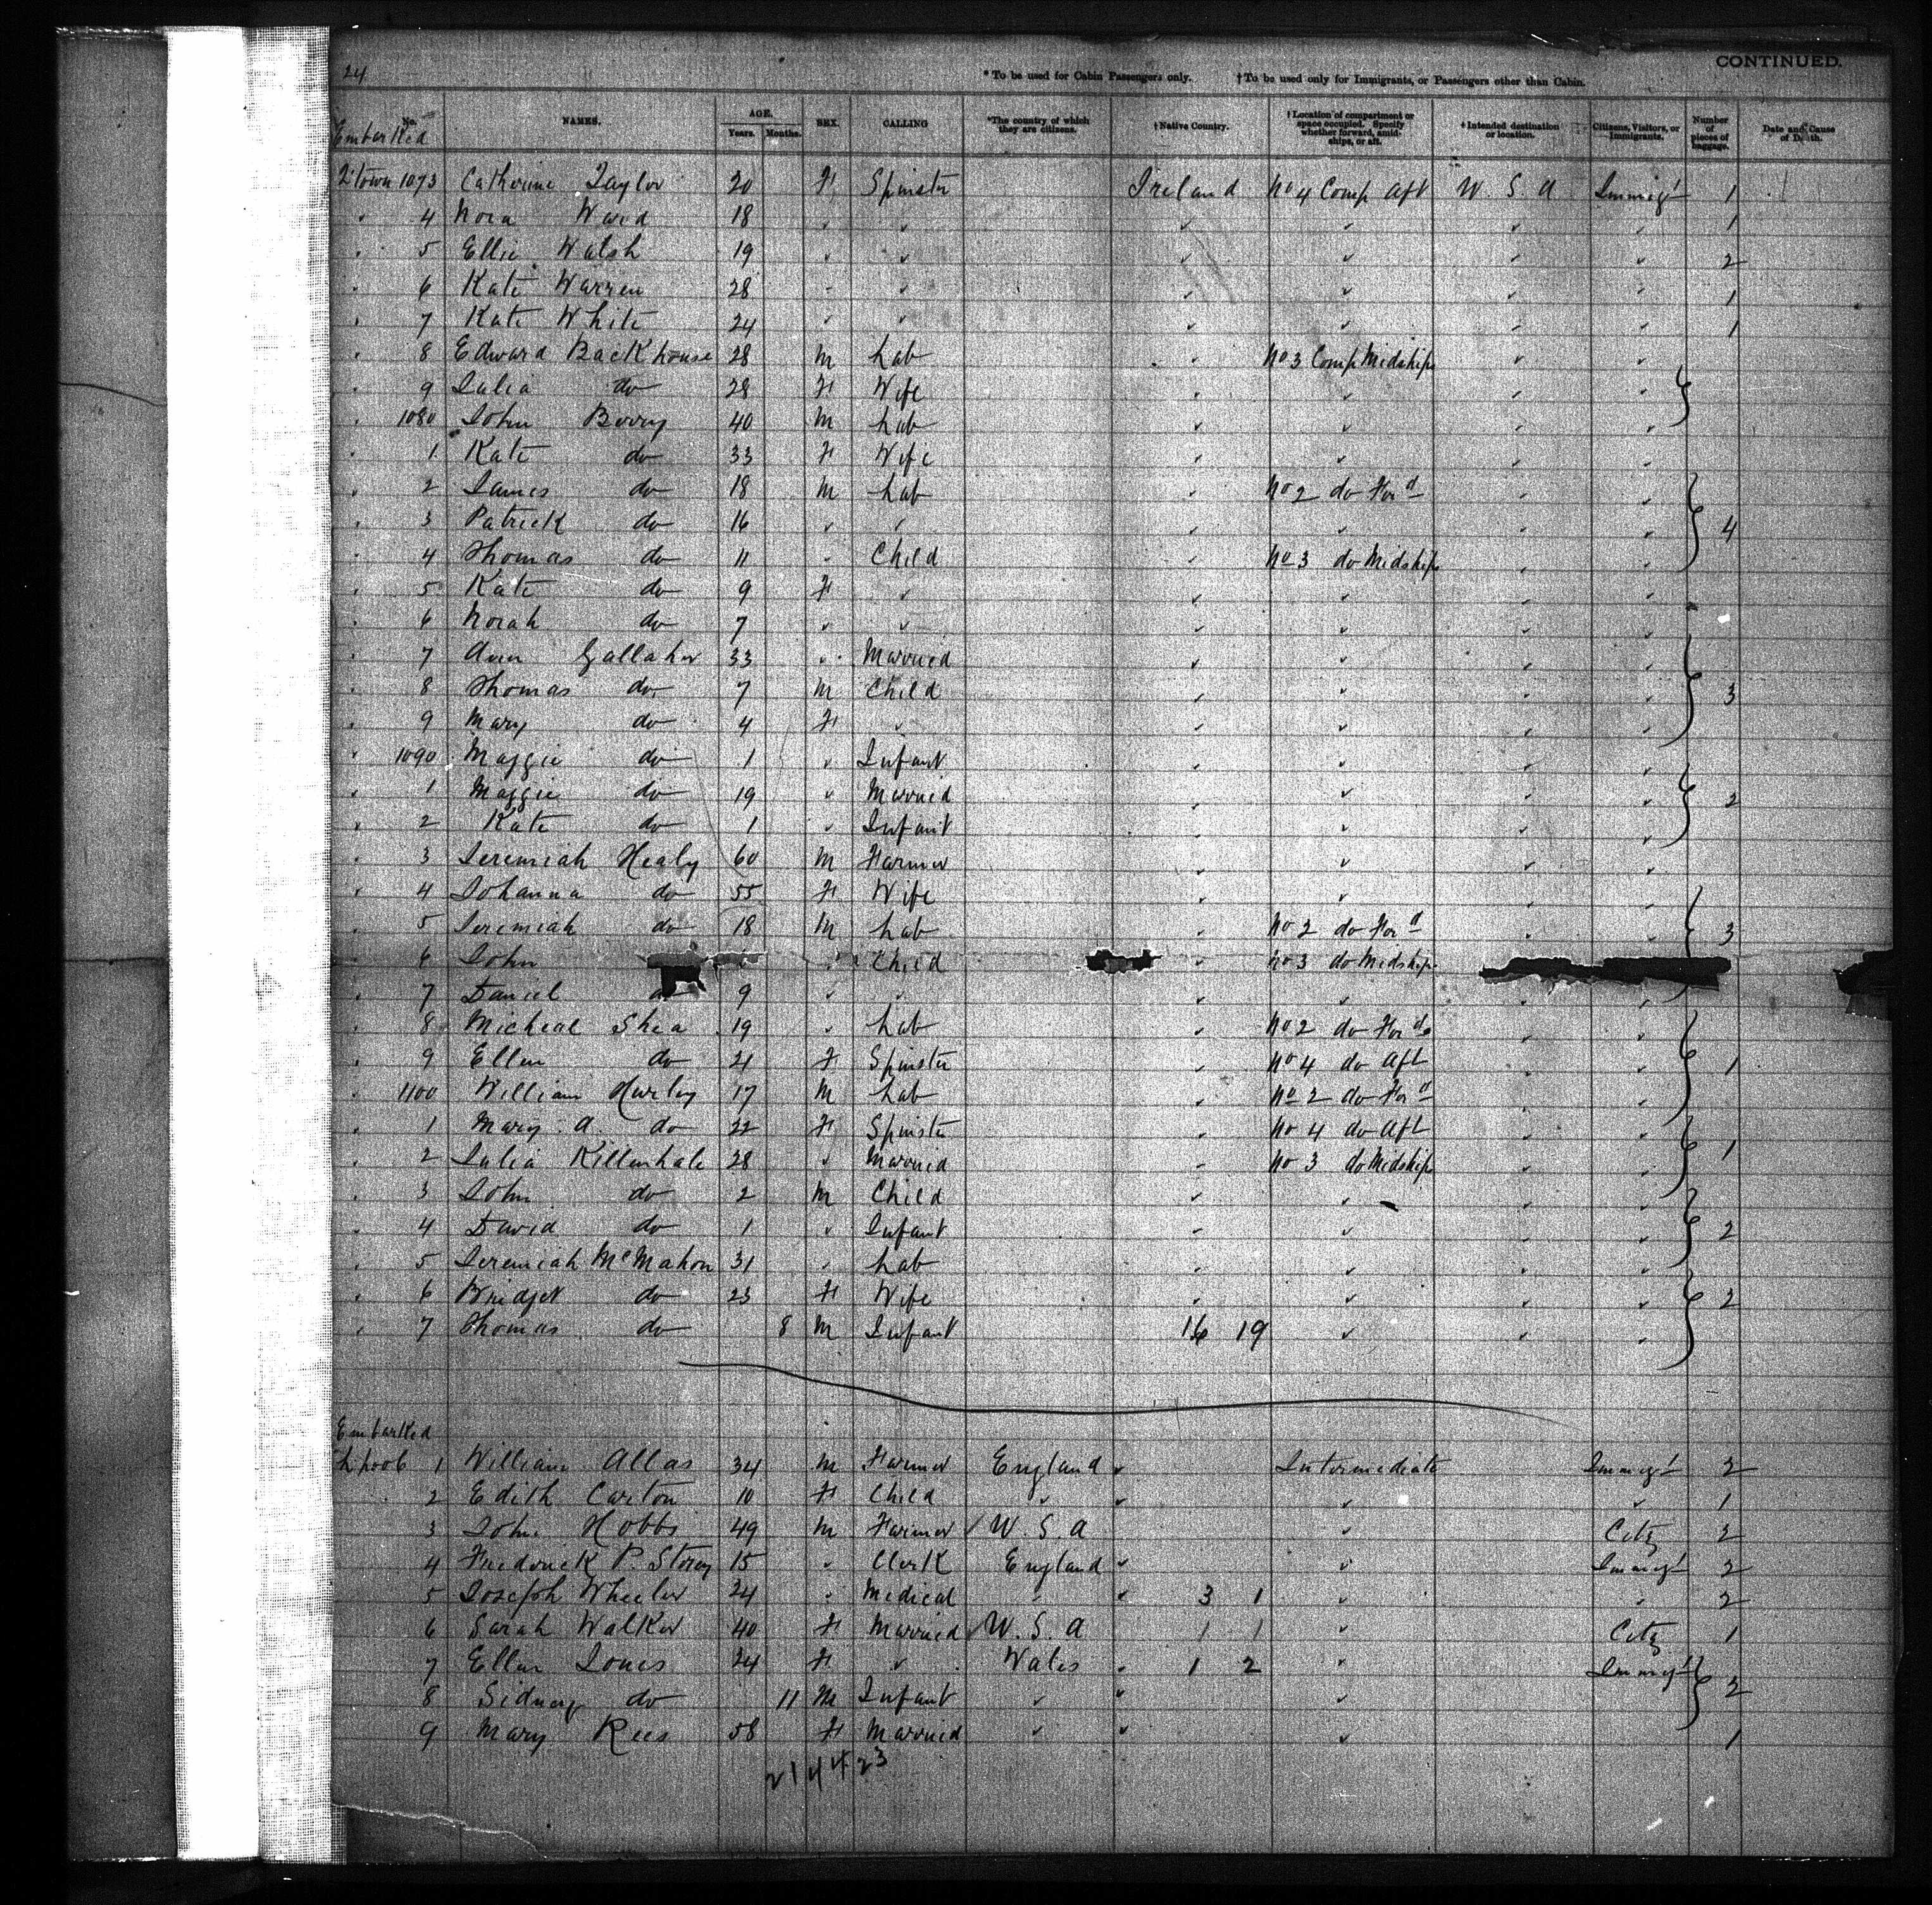 24
CONTINUED.
* To be used for Cabin Passengers only. † To be used only for Immigrants, or Passengers other than Cabin.
No. NAMES. AGE. Years. Months. SEX. CALLING *The country of which they are citizens. †Native Country. †Location of compartment or space occupied. Specify whether forward, amidships, or aft. †Intended destination or location. Citizens, Visitors, or Immigrants. Number of pieces of baggage. Date and Cause of Death.
Embarked
Q'town 1073 Catherine Taylor 20 F Spinster Ireland No 4 Comp Aft U.S.A Immigt 1
" 4 Nora Ward 18 " " " " " " 1
" 5 Ellie Walsh 19 " " " " " " 2
" 6 Kate Warren 28 " " " " " " 1
" 7 Kate White 24 " " " " " " 1
" 8 Edward Backhouse 28 M Lab " No 3 Comp Midship " "
" 9 Julia do 28 F Wife " " " "
" 1080 John Berry 40 M Lab " " " "
" 1 Kate do 33 F Wife " " " "
" 2 James do 18 M Lab " No 2 do For'd " "
" 3 Patrick do 16 " " " " " " 4
" 4 Thomas do 11 " Child " No 3 do Midship " "
" 5 Kate do 9 F " " " " "
" 6 Norah do 7 " " " " " "
" 7 Ann Gallaher 33 " Married " " " "
" 8 Thomas do 7 M Child " " " " 3
" 9 Mary do 4 F " " " " "
" 1090 Maggie do 1 " Infant " " " "
" 1 Maggie do 19 " Married " " " " 2
" 2 Kate do 1 " Infant " " " "
" 3 Jeremiah Healy 60 M Farmer " " " "
" 4 Johanna do 55 F Wife " " " "
" 5 Jeremiah do 18 M Lab " No 2 do For'd " " 3
" 6 John " Child " No 3 do Midship
" 7 Daniel do 9 " " " " " "
" 8 Micheal Shea 19 " Lab " No 2 do For'd " "
" 9 Ellen do 21 F Spinster " No 4 do Aft " " 1
" 1100 William Hurley 17 M Lab " No 2 do For'd " "
" 1 Mary A. do 22 F Spinster " No 4 do Aft " "
" 2 Julia Killenhale 28 " Married " No 3 do Midship " " 1
" 3 John do 2 M Child " " " "
" 4 David do 1 " Infant " " " " 2
" 5 Jeremiah McMahon 31 " Lab " " " "
" 6 Bridget do 23 F Wife " " " " 2
" 7 Thomas do 8 M Infant 16 19 " " "
Embarked
L'pool 1 William Allas 34 M Farmer England " Intermediate Immigt 2
2 Edith Carton 10 F Child " " " " 1
3 John Hobbs 49 M Farmer U.S.A " City 2
4 Frederick P. Storey 15 " Clerk England " " Immigt 2
5 Joseph Wheeler 24 " Medical " " 3 1 " " 2
6 Sarah Walker 40 F Married U.S.A 1 1 " City 1
7 Ellen Jones 24 F " Wales " 1 2 " Immigt
8 Sidney do 11 M Infant " " " 2
9 Mary Rees 58 F Married " " " 1
21 44 23